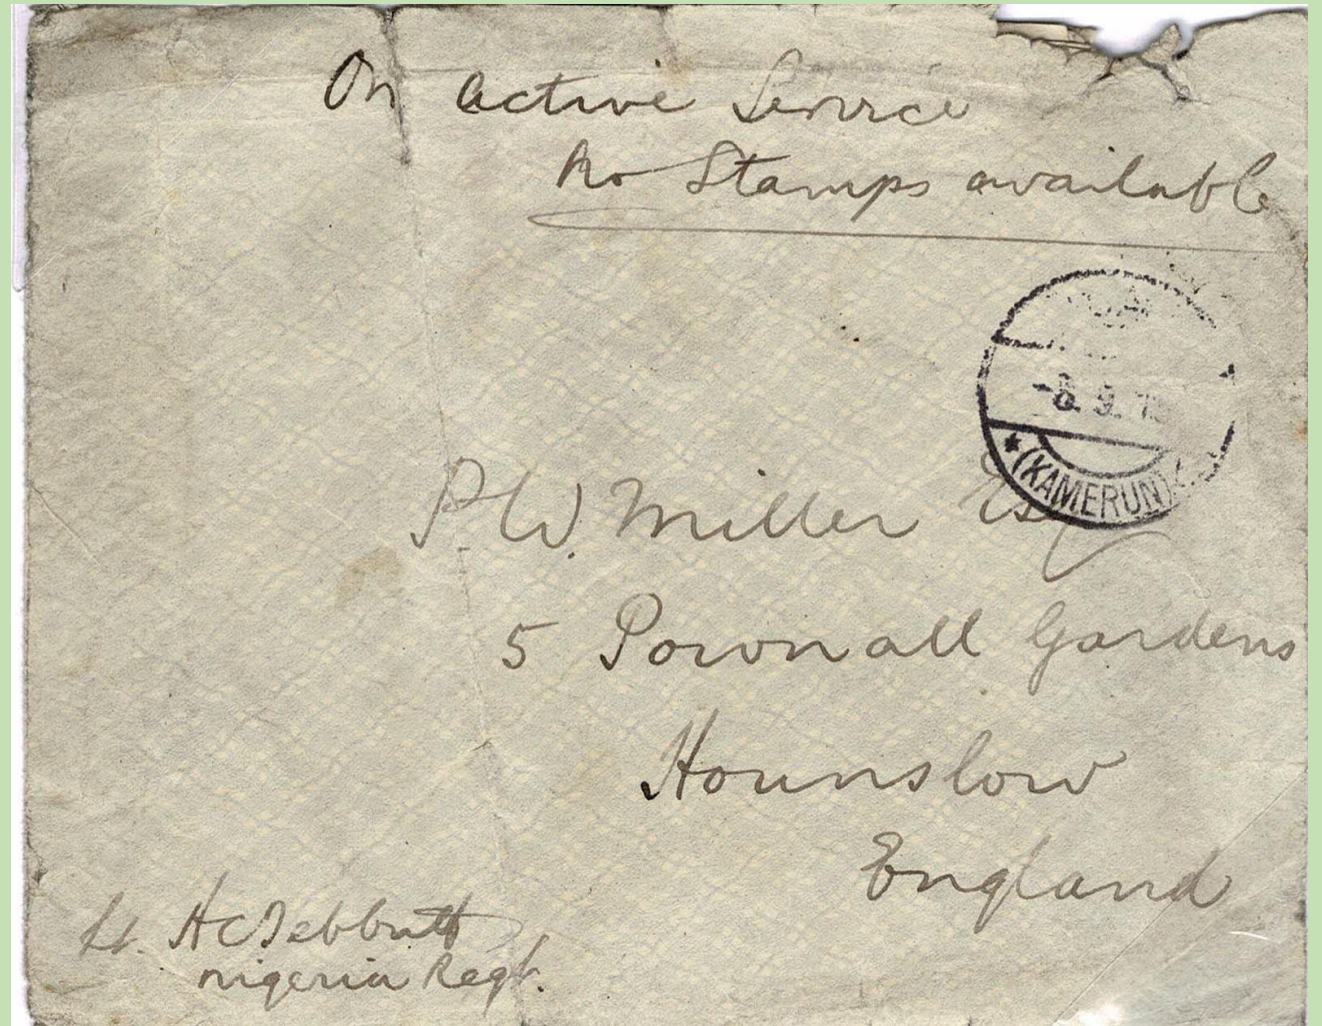 On active Service
No Stamps available
-8. 9. 15
* (KAMERUN)
P. W. Miller Esq
5 Pownall Gardens
Hounslow
England
Lt. H C Tebbutt
Nigeria Regt.